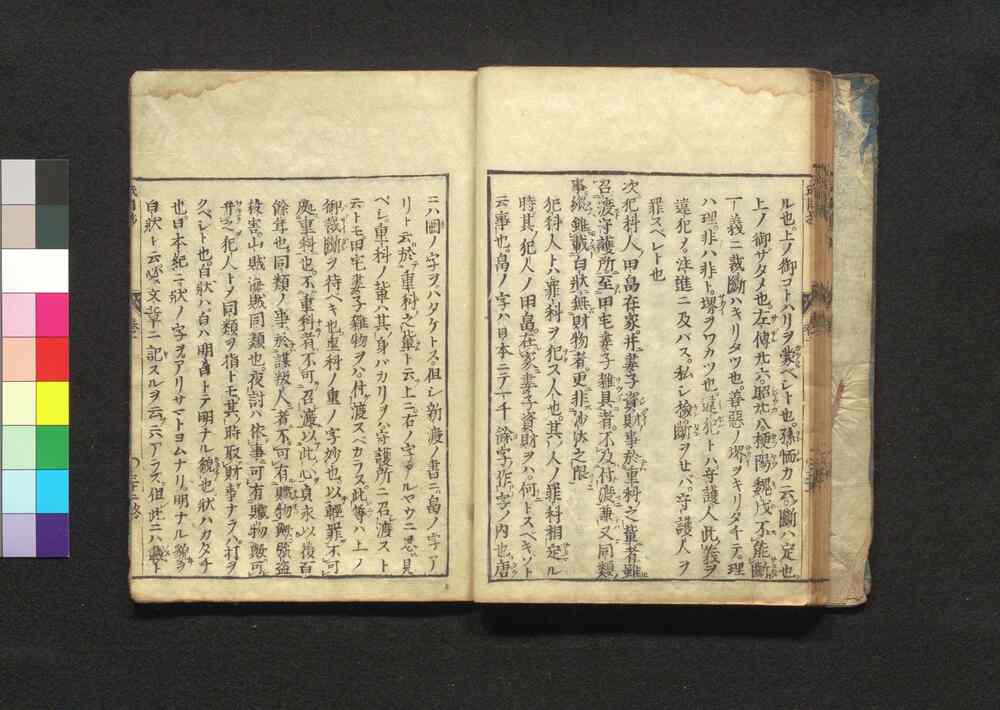 ル也上ノ御コトハリヲ蒙ベレト也孫愐カ云断ハ定也
上ノ御サタメ也左傳廿六昭廿八梗陽魏戊不能断
丁義ニ裁断ハキリタツ也善悪ノ堺ヲキリタチテ理
ハ理非ハ非ト堺ヲワカツ也違犯トハ守護人此義ヲ
違犯ノ注進ニ及バス私レ検断ヲセバ守護人ヲ
罪スベレト也
次犯科人田畠在家并妻子資財事於重科之輩者雖
召渡守護所至田宅妻子雑具者不及付渡兼又同類
事縦雖載白状無財物者更非沙汰之限
犯科人トハ罪科ヲ犯ス人也其人ノ罪科相定ル
時其犯人ノ田畠在家妻子資財ヲハ何トスベキソト
云事也畠ノ字ハ日本ニテ一千余字作字ノ内也唐
ニハ圃ノ字ヲハタケトス但レ新渡ノ書ニ畠ノ字ア
リト云於重科之輩ト云上ニ右ノ字アルヤウニ思見
ベレ重科ノ輩ハ其身バカリヲハ守護所ニ召渡スト
云トモ田宅妻子雑物ヲハ付渡スベカラス此等ハ上ノ
御裁断ヲ待ベキ也重科ノ重ノ字妙也以軽罪不可
処重科也不重科者不可召渡以此心貞永以後百
餘年也同類ノ事於謀叛人者不可有贓物歟強盗
殺害山賊海賊同類也夜討ハ依事可有贓物歟可
并之犯人トノ同類ヲ指トモ其時取財事ナラハ打ヲ
クベレト也白状ハ白ハ明白トテ明ナル貌也状ハカタチ
也日本紀ニ状ノ字ヲアリサマトヨムナリ明ナル貌ヲ
白状ト云必文章ニ記スルヲ云ニアラス但此ニハ載ト